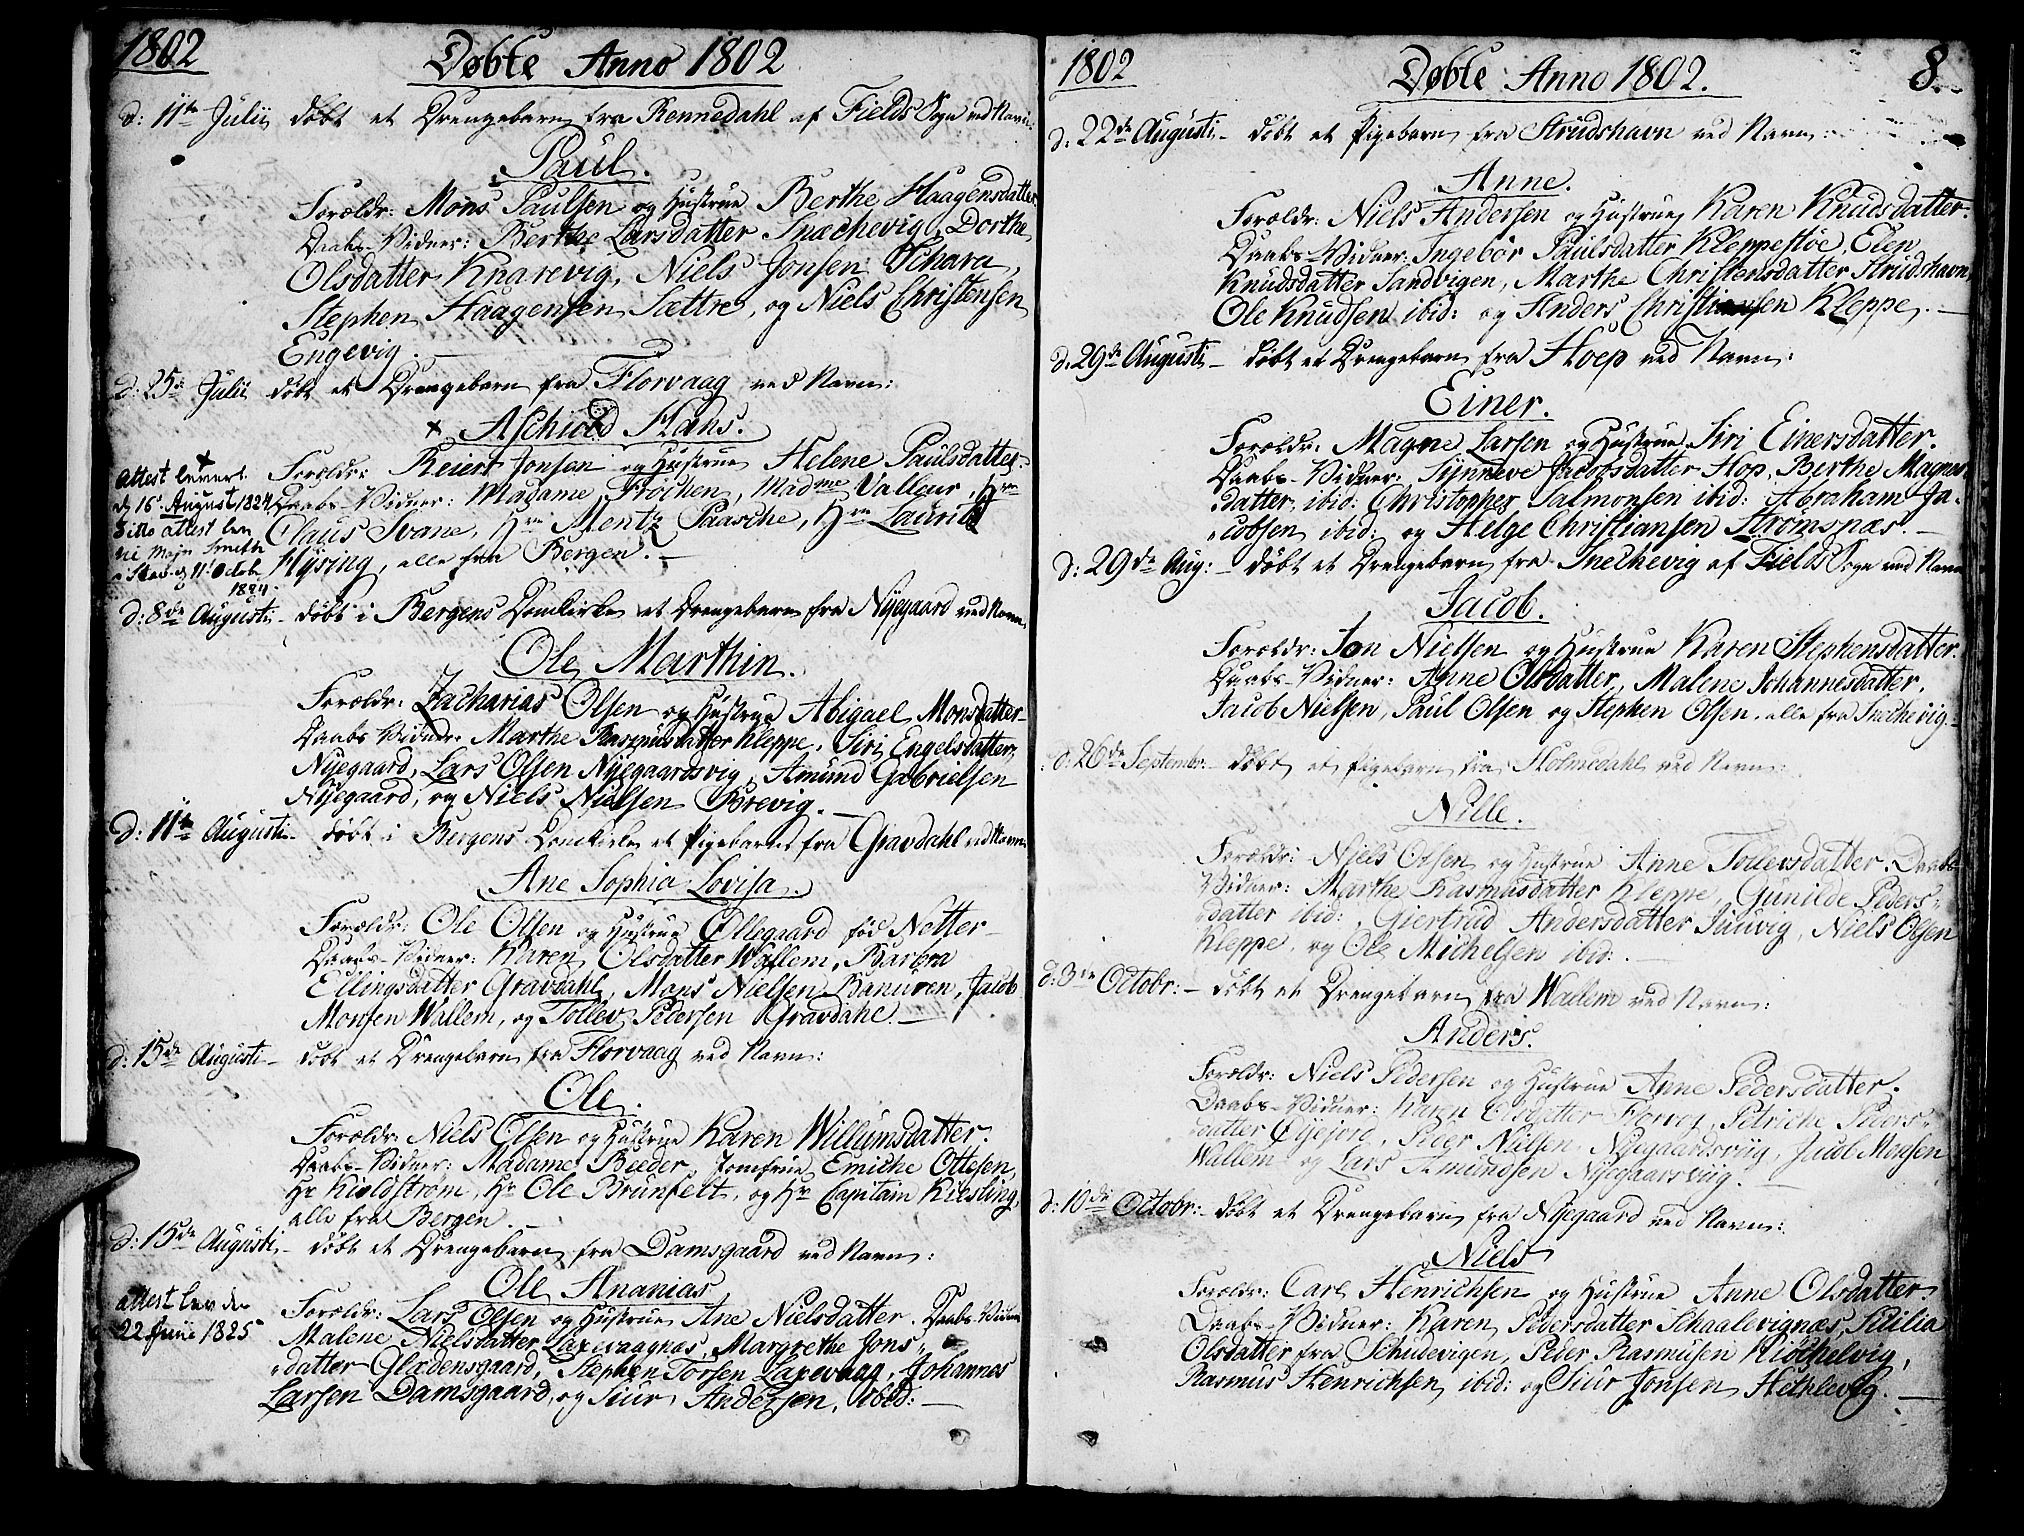 1802
Døbte Anno 1802
d: 11te Julii døbt et Drengebarn fra Rennedahl af Fields Sogn ved Navn:
Paul.
Forældr: Mons Paulsen og Hustrue Berthe Haagensdatter
Daabs-Vidner: Berthe Larsdatter Snechevig, Dorthe
Olsdatter Knarevig, Niels Jonsen Schara,
Stephen Haagensen Sættre, og Niels Christensen
Engevig.
d: 25de Julii døbt et Drengebarn fra Florvaag ved Navn:
Aschiold Hans.
Forældr: Reiert Jonsen og Hustrue Helene Paulsdatter.
Daabs-Vidner: Madame Frøchen, Madme Valleur, Hrn
Claus Svane, Hrn Mentz Paasche, Hrn Lauritz
Hysing, alle fra Bergen.
Attest levert
d 16. August 1824
Ditto attest lev
til Majr Smith
i Stav. d 11 Octobr
1824.
d: 8de Augusti døbt i Bergens Domkirke et Drengebarn fra Nyegaard ved Navn
Ole Marthin.
Forældr: Zacharias Olsen og Hustrue Abigael Monsdatter
Daabs Vidner: Marthe Rasmusdatter Kleppe, Siri Engelsdatter
Nyegaard, Lars Olsen Nyegaardsvig, Amund Gabrielsen
Nyegaard, og Niels Nielsen Brevig.
d: 11te Augusti døbt i Bergens Domkirke et Pigebarn fra Gravdahl ved Navn
Ane Sophia Lovisa.
Forældr: Ole Olsen og Hustrue Ollegaard fød Netter
Daabs-Vidner: Karen Olsdatter Wallem, Barbra
Ellingsdatter Gravdahl, Mons Nielsen Kanuren, Jacob
Monsen Wallem, og Tollev Pedersen Gravdahl.
d: 15de Augusti døbt et Drengebarn fra Florvaag ved Navn:
Ole.
Forældr: Niels Olsen og Hustrue Karen Willumsdatter.
Daabs-Vidner: Madame Beeder, Jomfrue Emiche Ottesen,
Hr Kioldstrøm, Hr Ole Brunfelt, og Hr Capitain Kiesling,
alle fra Bergen.
d: 15de Augusti døbt et Drengebarn fra Damsgaard ved Navn:
Ole Ananias
Forældr: Lars Olsen og Hustrue Ane Nielsdatter. Daabs-Vidner
Malene Nielsdatter Laxevaagnæs, Margrethe Jons-
datter Gladensgaard, Stephen Torsen Laxevaag, Johannes
Larsen Damsgaard, og Siur Andersen, ibid:
attest lev den
22 Junii 1825
1802
Døbte Anno 1802.
8.
d: 22de Augusti døbt et Pigebarn fra Strudshavn ved Navn:
Anne.
Forældr: Niels Andersen og Hustrue Karen Knudsdatter.
Daabs-Vidner: Ingebor Paulsdatter Kleppestøe, Elen
Knudsdatter Sandvigen, Marthe Christensdatter Strudshavn,
Ole Knudsen ibid: og Anders Christiansen Kleppe.
d: 29de Augusti døbt et Drengebarn fra Hoep ved Navn:
Einer.
Forældr: Magne Larsen og Hustrue Siri Einersdatter.
Daabs-Vidner: Synneve Jacobsdatter Hop, Berthe Magnes-
datter, ibid: Christopher Salmonsen ibid: Abraham Ja-
cobsen ibid: og Helge Christiansen Strømsnæs.
d: 29de Aug: døbt et Drengebarn fra Snechevig af Fields Sogn ved Navn
Jacob.
Forældr: Jon Nielsen og Hustrue Karen Stephensdatter.
Daabs-Vidner: Anne Olsdatter, Malene Johannesdatter,
Jacob Nielsen, Paul Olsen og Stephen Olsen, alle fra Snechevig.
d: 26de Septembr: døbt et Pigebarn fra Holmedahl ved Navn:
Nille.
Forældr: Niels Olsen og Hustrue Anne Tollevsdatter. Daabs-
Vidner: Marthe Rasmusdatter Kleppe, Gunilde Peders-
datter ibid:, Giertrud Andersdatter Juuvig, Niels Olsen
Kleppe, og Ole Michelsen ibid:.
d: 3de Octobr: døbt et Drengebarn fra Wallem ved Navn:
Anders.
Forældr: Niels Pedersen og Hustrue Anne Pedersdatter.
Daabs-Vidner: Karen Olsdatter Florvog, Petriche Peders-
datter Øyejord, Peder Nielsen Nyegaardsviig, Jacob Monsen
Wallem og Lars Amundsen Nyegaarsviig.
d: 10de Octobr: døbt et Drengebarn fra Nyegaard ved Navn:
Niels
Forældr: Carl Henrichsen og Hustrue Anne Olsdatter
Daabs-Vidner: Karen Pedersdatter Schaalevignæs, Sicilia
Olsdatter fra Schudevigen, Peder Rasmusen Kiøchelvig,
Rasmus Henrichsen ibid: og Siur Jonsen Hethlevig.